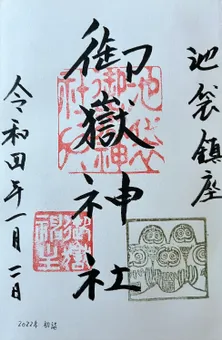 池袋鎮座
御嶽神社
令和四年一月二日
池袋
御嶽神
社
2022年 初詣